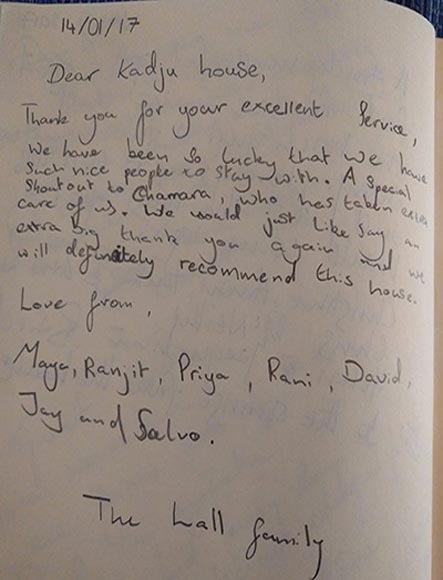 14/01/17
Dear Kadju house,
Thank you for your excellent Service,
We have been so lucky that we have
Such nice people to stay with. A special
Shoutout to Chamara, who has taken extra
care of us. We would just like say an
extra big thank you again and we
will definitely recommend this house.
Love from,
Maya, Ranjit, Priya, Rani, David,
Jay and Salvo.
The Lall family